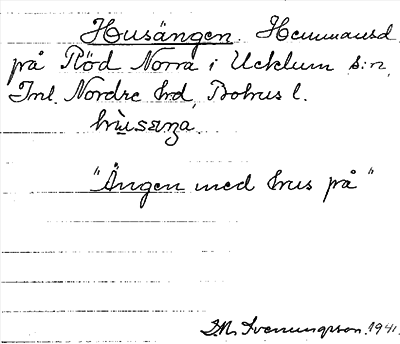 Husängen. Hemmansd.
på Röd Norra i Ucklum s:n,
Inl. Nordre hd, Bohus l.
hùsæŋa.
"Ängen med hus på"
J.M. Svenungsson. 1941.